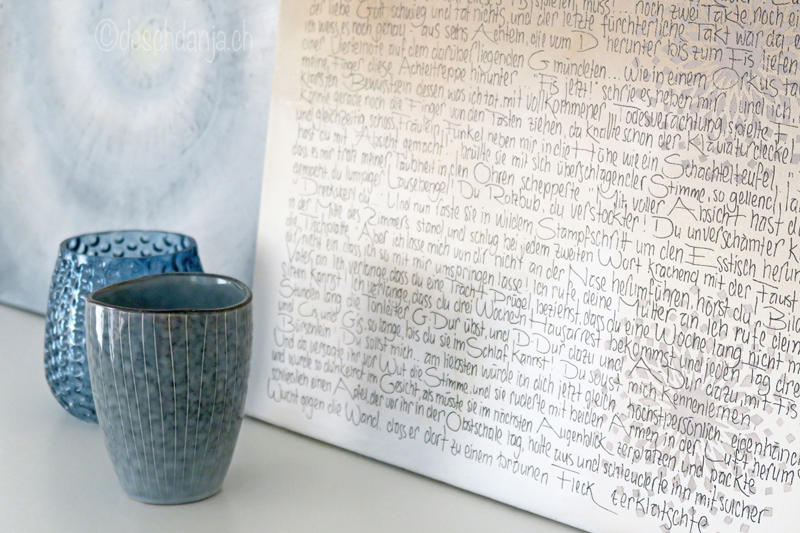 ©deschdanja.ch
der liebe Gott schwieg und tat nichts, und der letzte fürchterliche Takt war da, e
ich weiss es noch genau, aus sechs Achteln, die vom D herunter bis zum Fis liefen
einer Viertelnote auf dem darüberliegenden G mündeten... wie in einem Orkus ta
meine Finger diese Achteltreppe hinunter, Fis jetzt! schrie es neben mir und ich
klarsten Bewusstsein dessen was ich tat, mit vollkommener Todesverachtung spielte F
konnte gerade noch die Finger von den Tasten ziehen, da knallte schon der Klaviaturdeckel
und gleichzeitig schoss Fräulein Funkel neben mir in die Höhe wie ein Schachtelteufel
hast du mit Absicht gemacht! brüllte sie mit sich überschlagender Stimme, so gellend, la
dass es mir trotz meiner Taubheit in den Ohren schepperte Mit voller Absicht hast d
gemacht, du lumpiger Lausebengel! Du Rotzbub, du verstockter! Du unverschämter k
Dreckskerl du Und nun raste sie in wildem Stampfschritt um den Esstisch herum
in der Mitte des Zimmers stand und schlug bei jedem zweiten Wort krachend mit der Faust
die Tischplatte Aber ich lasse mich von dir nicht an der Nase herumführen, hörst du Bild
nur nicht ein dass ich so mit mir umspringen lasse! Ich rufe deine Mutter an. Ich rufe dein
Vater an. Ich verlange, dass du eine Tracht Prügel beziehst, dass du eine Woche lang nicht m
sitzen kannst! Ich verlange, dass du drei Wochen Hausarrest bekommst und jeden Tag drei
Stunden lang die Tonleiter G-Dur übst und D-Dur dazu und A-Dur dazu mit Fis
und Cis und Gis so lange bis du sie im Schlaf kannst! Du sollst mich kennenlernen
Bürschlein! Du sollst mich.. am liebsten würde ich dich jetzt gleich höchstpersönlich eigenhän
Und da versagte ihr vor Wut die Stimme, und sie ruderte mit beiden Armen in der Luft herum
und wurde so dunkelrot im Gesicht als müsste sie im nächsten Augenblick zerplatzen und packte
schliesslich einen Apfel, der vor ihr in der Obstschale lag, holte aus und schleuderte ihn mit solcher
Wucht gegen die Wand, dass er dort zu einem braunen Fleck zerklatschte